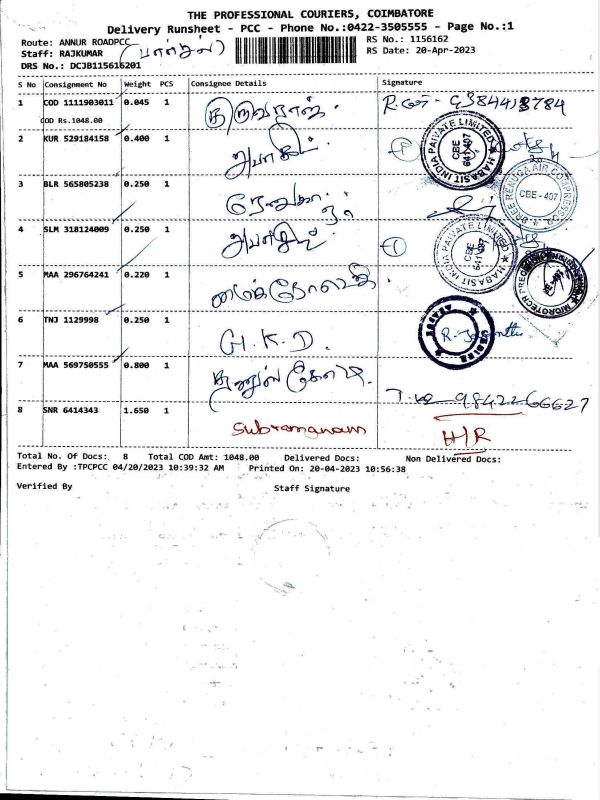 THE PROFESSIONAL COURIERS, COIMBATORE
Delivery Runsheet - PCC - Phone No.:0422-3505555 - Page No.:1
Route: ANNUR ROADPCC
RS No.: 1156162
Staff: RAJKUMAR
RS Date: 20-Apr-2023
DRS No.: DCJB115616201
S No Consignment No Weight PCS Consignee Details Signature
1 COD 1111903011 0.045 1
COD Rs.1048.00
2 KUR 529184158 0.400 1
HABASIT INDIA PAIVATE LIMITED CBE 641 407
3 BLR 565805238 0.250 1
SREE RENUGA AIR COMPRESSOR CBE - 407
4 SLM 318124009 0.250 1
HABASIT INDIA PAIVATE LIMITED CBE 641 407
5 MAA 296764241 0.220 1
6 TNJ 1129998 0.250 1 G.K.D.
7 MAA 569750555 0.800 1
98422 66627
8 SNR 6414343 1.650 1 Subramaniam H/R
Total No. Of Docs: 8 Total COD Amt: 1048.00 Delivered Docs: Non Delivered Docs:
Entered By :TPCPCC 04/20/2023 10:39:32 AM Printed On: 20-04-2023 10:56:38
Verified By Staff Signature